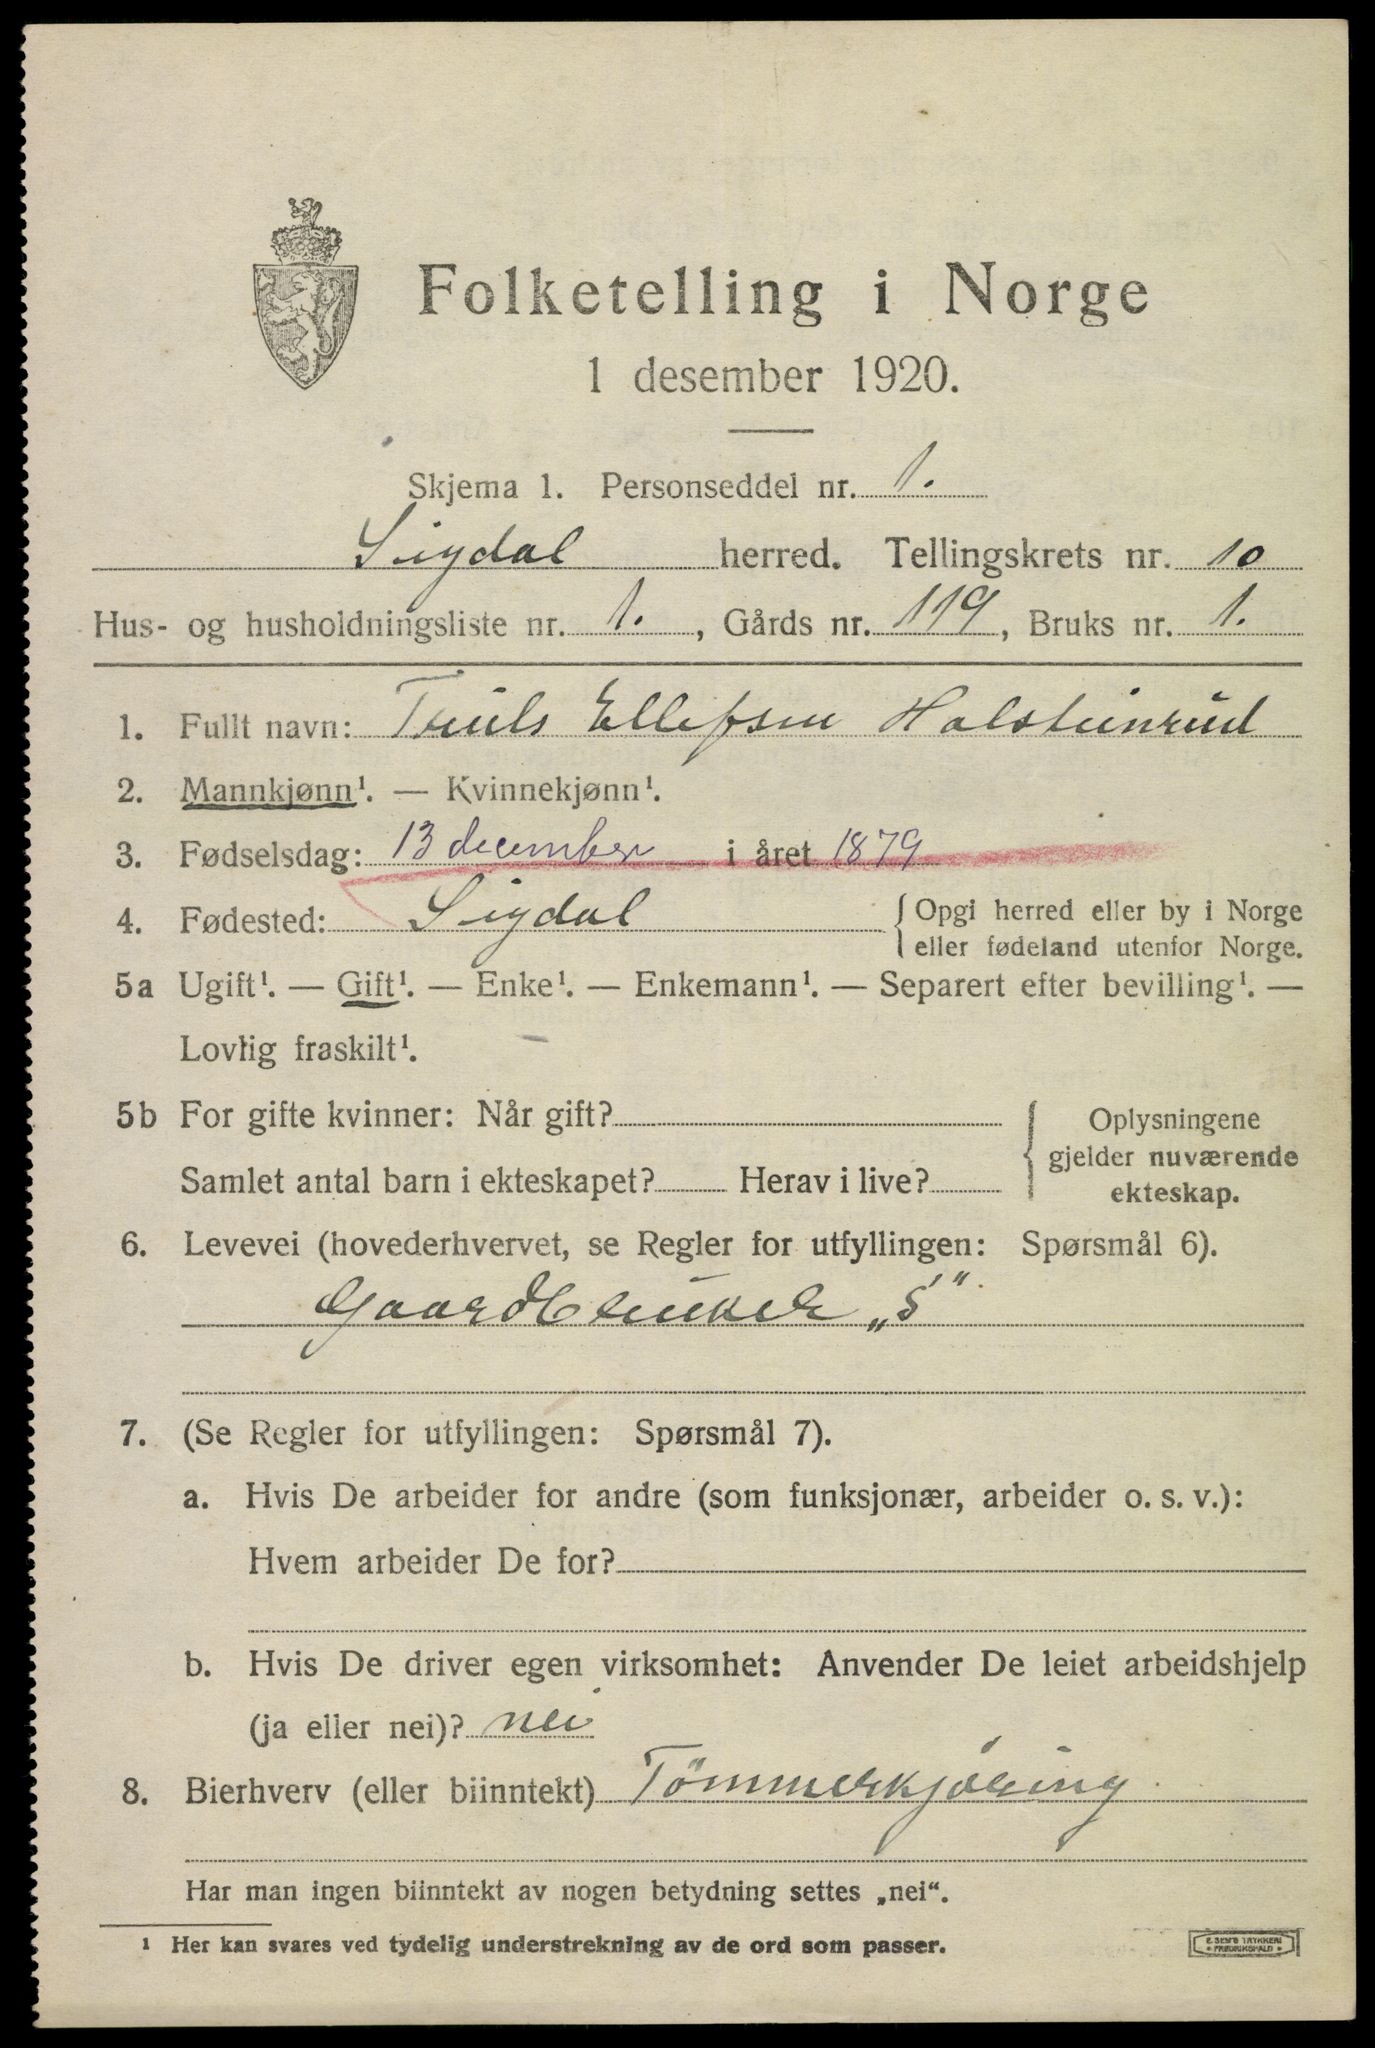 Folketelling i Norge
1 desember 1920.
Skjema 1. Personseddel nr. 1.
Sigdal herred. Tellingskrets nr. 10
Hus- og husholdningsliste nr. 1. , Gårds nr. 119, Bruks nr. 1.
1. Fullt navn: Truls Ellefsen Holsteinrud
2. Mannkjønn¹. — Kvinnekjønn¹.
3. Fødselsdag: 13 december i året 1879
4. Fødested: Sigdal { Opgi herred eller by i Norge
eller fødeland utenfor Norge.
5a Ugift¹. — Gift¹. — Enke¹. — Enkemann¹. — Separert efter bevilling¹. —
Lovlig fraskilt¹.
5b For gifte kvinner: Når gift?
Samlet antal barn i ekteskapet? Herav i live?
{ Oplysningene
gjelder nuværende
ekteskap.
6. Levevei (hovederhvervet, se Regler for utfyllingen: Spørsmål 6).
Gaardbruker „S“
7. (Se Regler for utfyllingen: Spørsmål 7).
a. Hvis De arbeider for andre (som funksjonær, arbeider o. s. v.):
Hvem arbeider De for?
b. Hvis De driver egen virksomhet: Anvender De leiet arbeidshjelp
(ja eller nei)? nei
8. Bierhverv (eller biinntekt) Tömmerkjöring
Har man ingen biinntekt av nogen betydning settes „nei“.
¹ Her kan svares ved tydelig understrekning av de ord som passer.
E. SEM'S TRYKKERI
FREDRIKSHALD